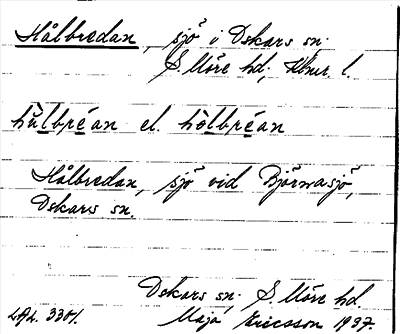 Hålbredan, sjö i Oskars sn.
S. Möre hd; Klmr. l.
hùlbréan el. hòlbréan
Hålbredan, sjö vid Björnasjö,
Oskars sn.
Oskars sn; S. Möre hd.
LAL. 3301. Maja Ericsson 1937.